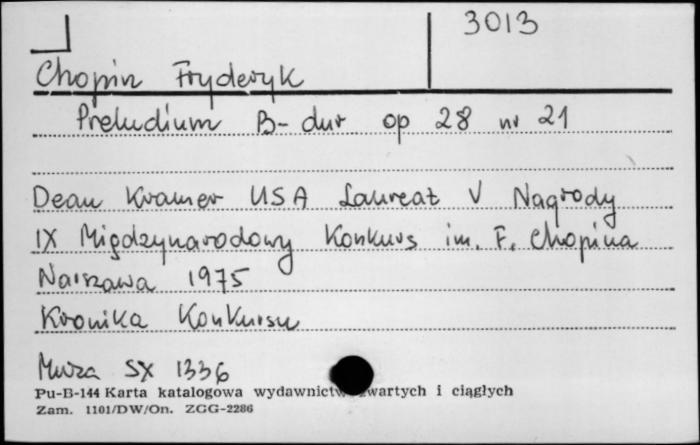 3013
Chopin Fryderyk
Preludium B-dur op 28 nr 21
Dean Kramer USA Laureat V Nagrody
IX Międzynarodowy Konkurs im. F. Chopina
Warszawa 1975
Kronika Konkursu
Muza SX 1336
Pu-B-144 Karta katalogowa wydawnictw zwartych i ciągłych
Zam. 1101/DW/On. ZGG-2286